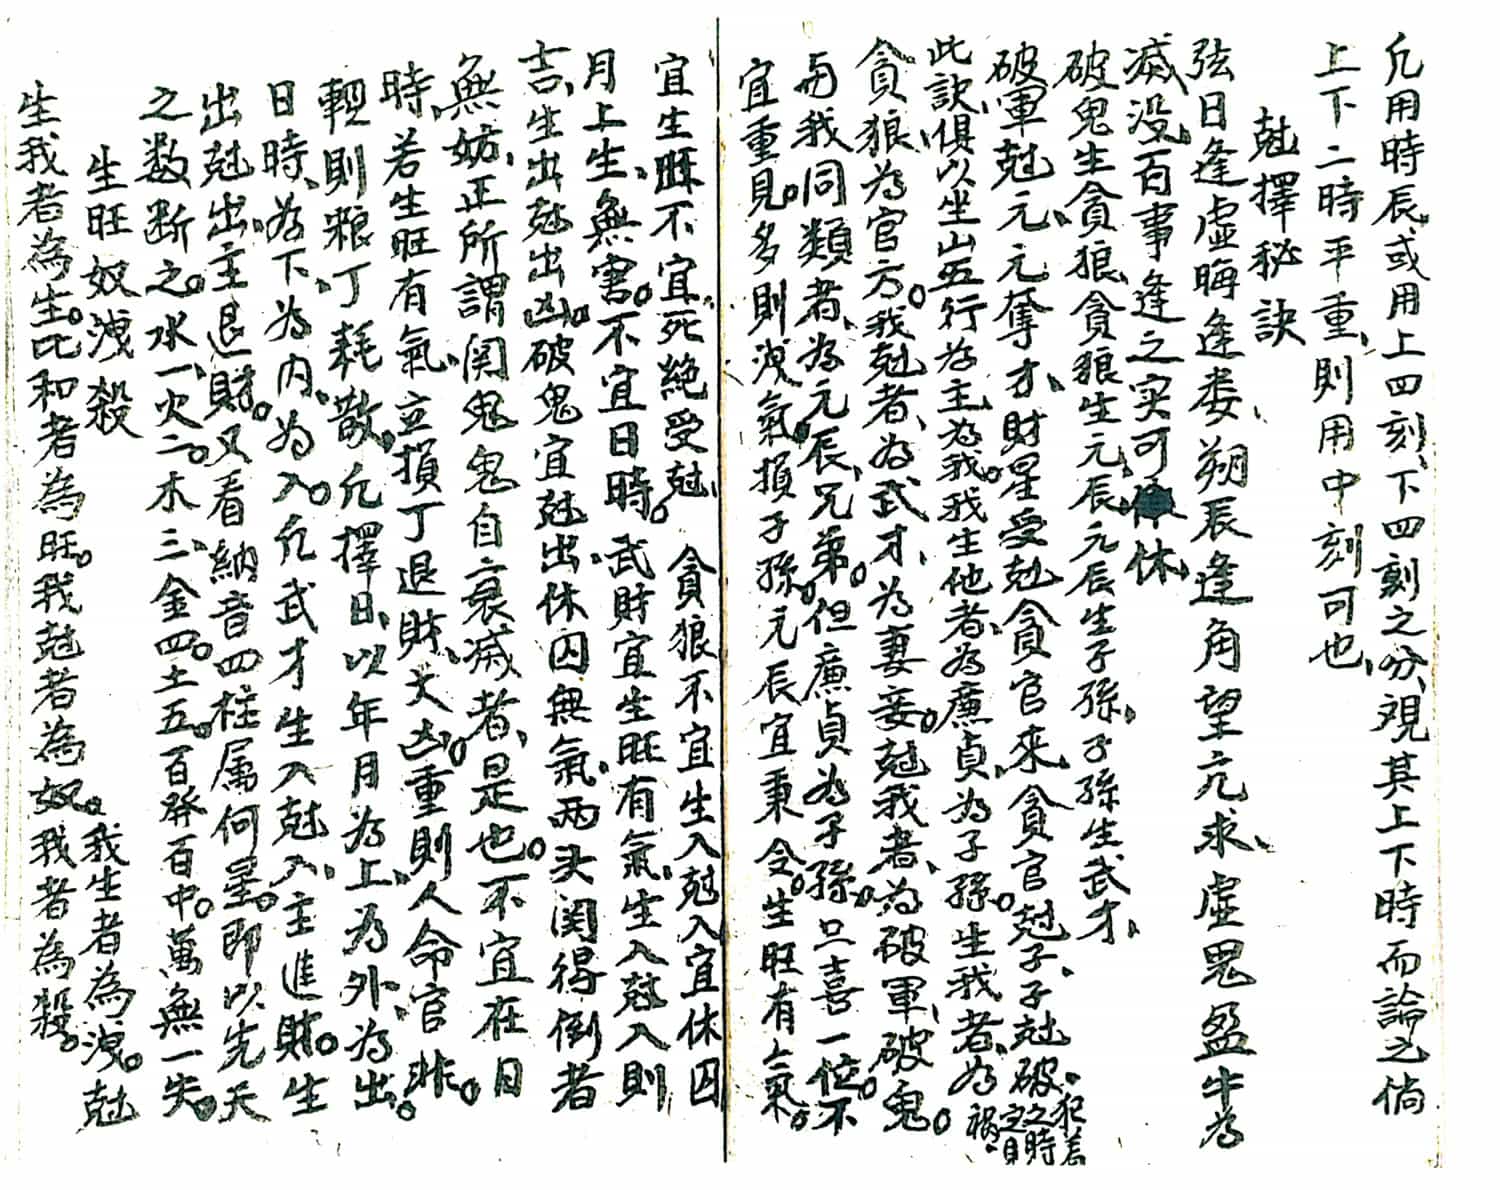 凡用時辰、或用上四刻、下四刻之分、視其上下時而論之倘
上下二時平重、則用中刻可也、
尅擇秘訣
弦日逢虛晦逢娄、朔辰逢角望亢求、虛鬼盈牛為
滅没、百事逢之实可休、
破鬼生貪狼、貪狼生元辰、元辰生子孫、子孫生武才、
破軍尅元、元奪才、財星受尅貪官來、貪官尅子、子尅破、犯着之時之日禍、
此訣俱以坐山五行為主為我。我生他者、為廉貞、為子孫。生我者、為
貪狼、為官方。我尅者、為武才、為妻妾。尅我者、為破軍、破鬼。
与我同類者、為元辰、兄弟。但廉貞為子孫、只喜一位。不
宜重見。多則洩氣、損子孫。元辰宜秉令。生旺有氣。
宜生旺不宜死絶受尅。貪狼不宜生入尅入宜休囚
月上生、無害。不宜日時、武財宜生旺有氣、生入尅入則
吉、生出尅出凶。破鬼宜尅出、休囚無氣、两头関得倒者
無妨、正所謂関鬼鬼自衰滅者、是也。不宜在日
時、若生旺有氣、立損丁退財、大凶。重則人命官非。
輕則粮丁耗散、凡擇日、以年月為上、為外、為出。
日時、為下、為内、為入。凡武才生入尅入、主進財。生
出尅出、主退財。又看納音四柱属何星。即以先天
之数断之。水一、火二。木三、金四。土五。百發百中。萬無一失。
生旺奴洩殺
生我者為生。比和者為旺。我尅者為奴。我生者為洩。尅
我者為殺。